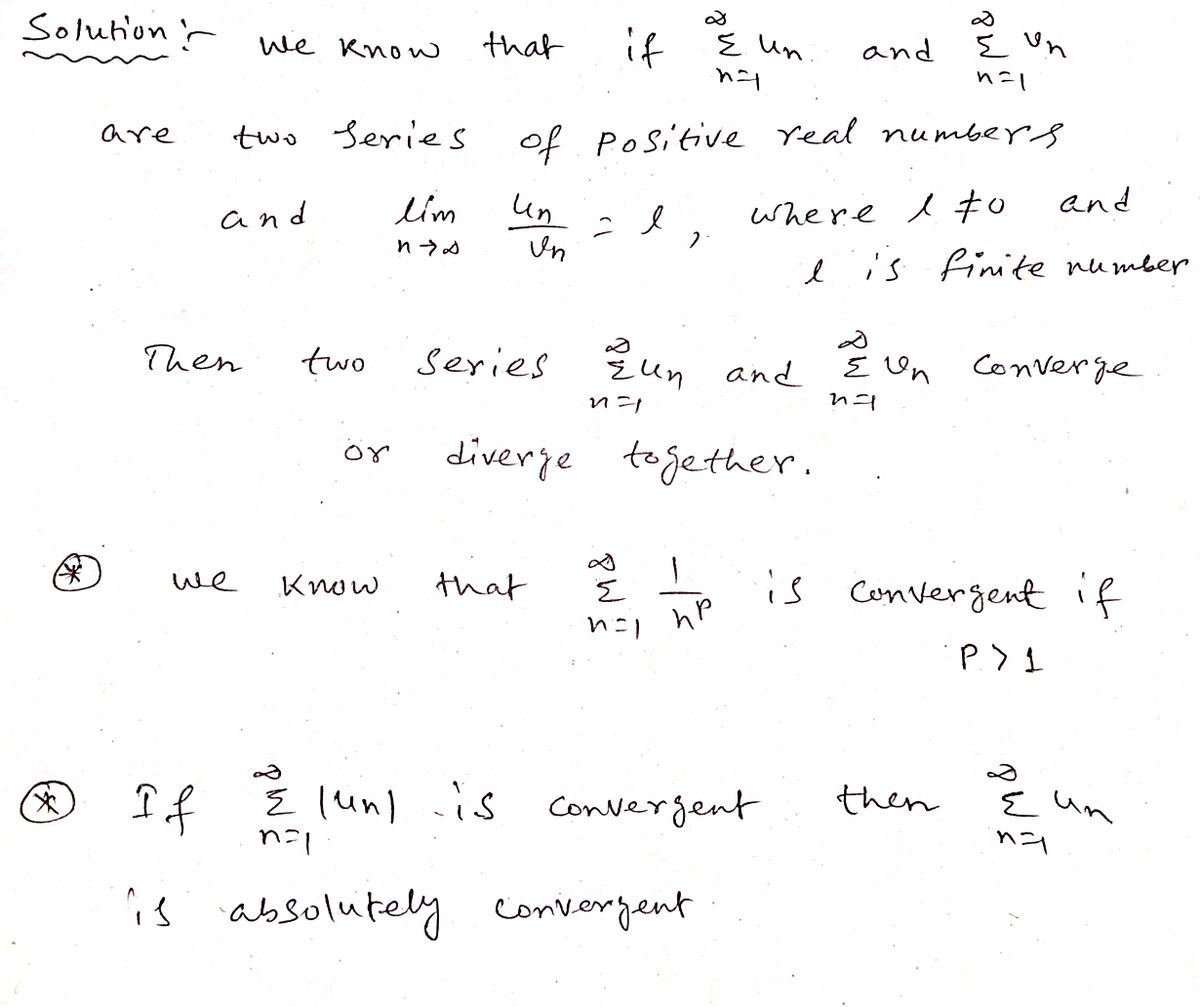 Solution :- we know that if ∞Σn=1 un and ∞Σn=1 vn
are two series of positive real numbers
and lim n→∞ un/vn = l, where l ≠ 0 and
l is finite number
Then two series ∞Σn=1 un and ∞Σn=1 vn converge
or diverge together.
⊛ we know that ∞Σn=1 1/n^p is convergent if
p > 1
⊛ If ∞Σn=1 |un| is convergent then ∞Σn=1 un
is absolutely convergent